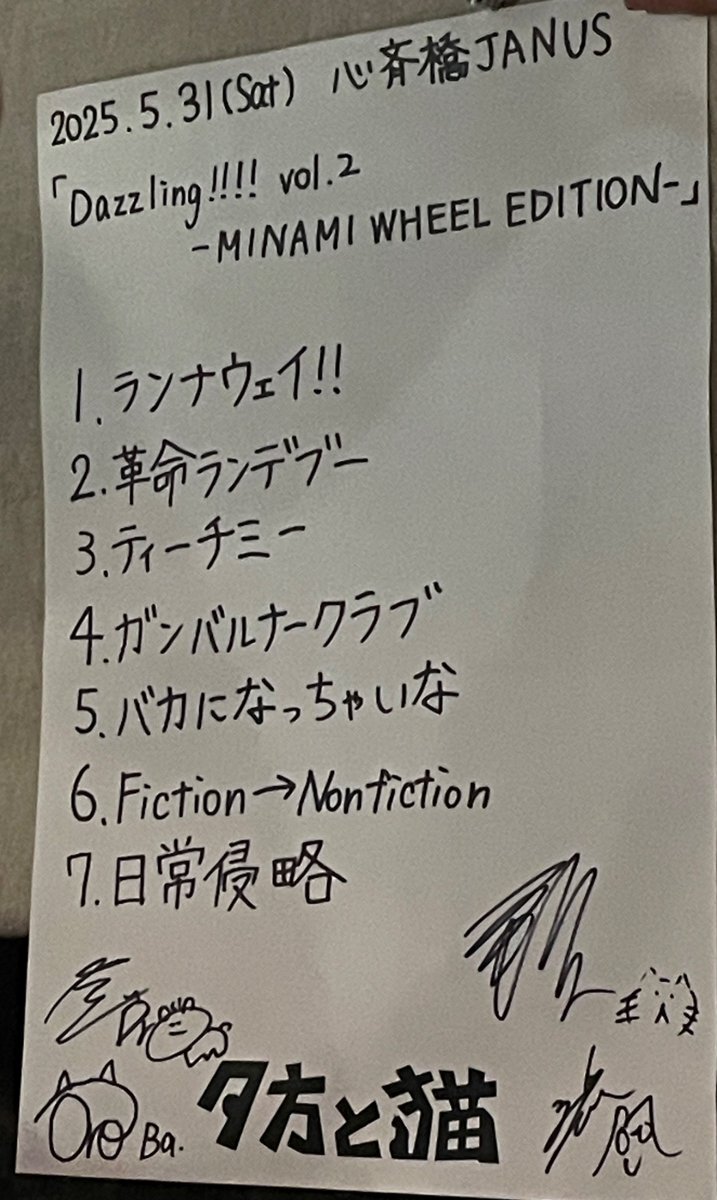 2025.5.31(Sat) 心斉橋JANUS
「Dazzling!!!! vol.2
-MINAMI WHEEL EDITION-」
1.ランナウェイ!!
2.革命ランデブー
3.ティーチミー
4.ガンバルナークラブ
5.バカになっちゃいな
6.Fiction→Nonfiction
7.日常侵略
Ba.
夕方と猫